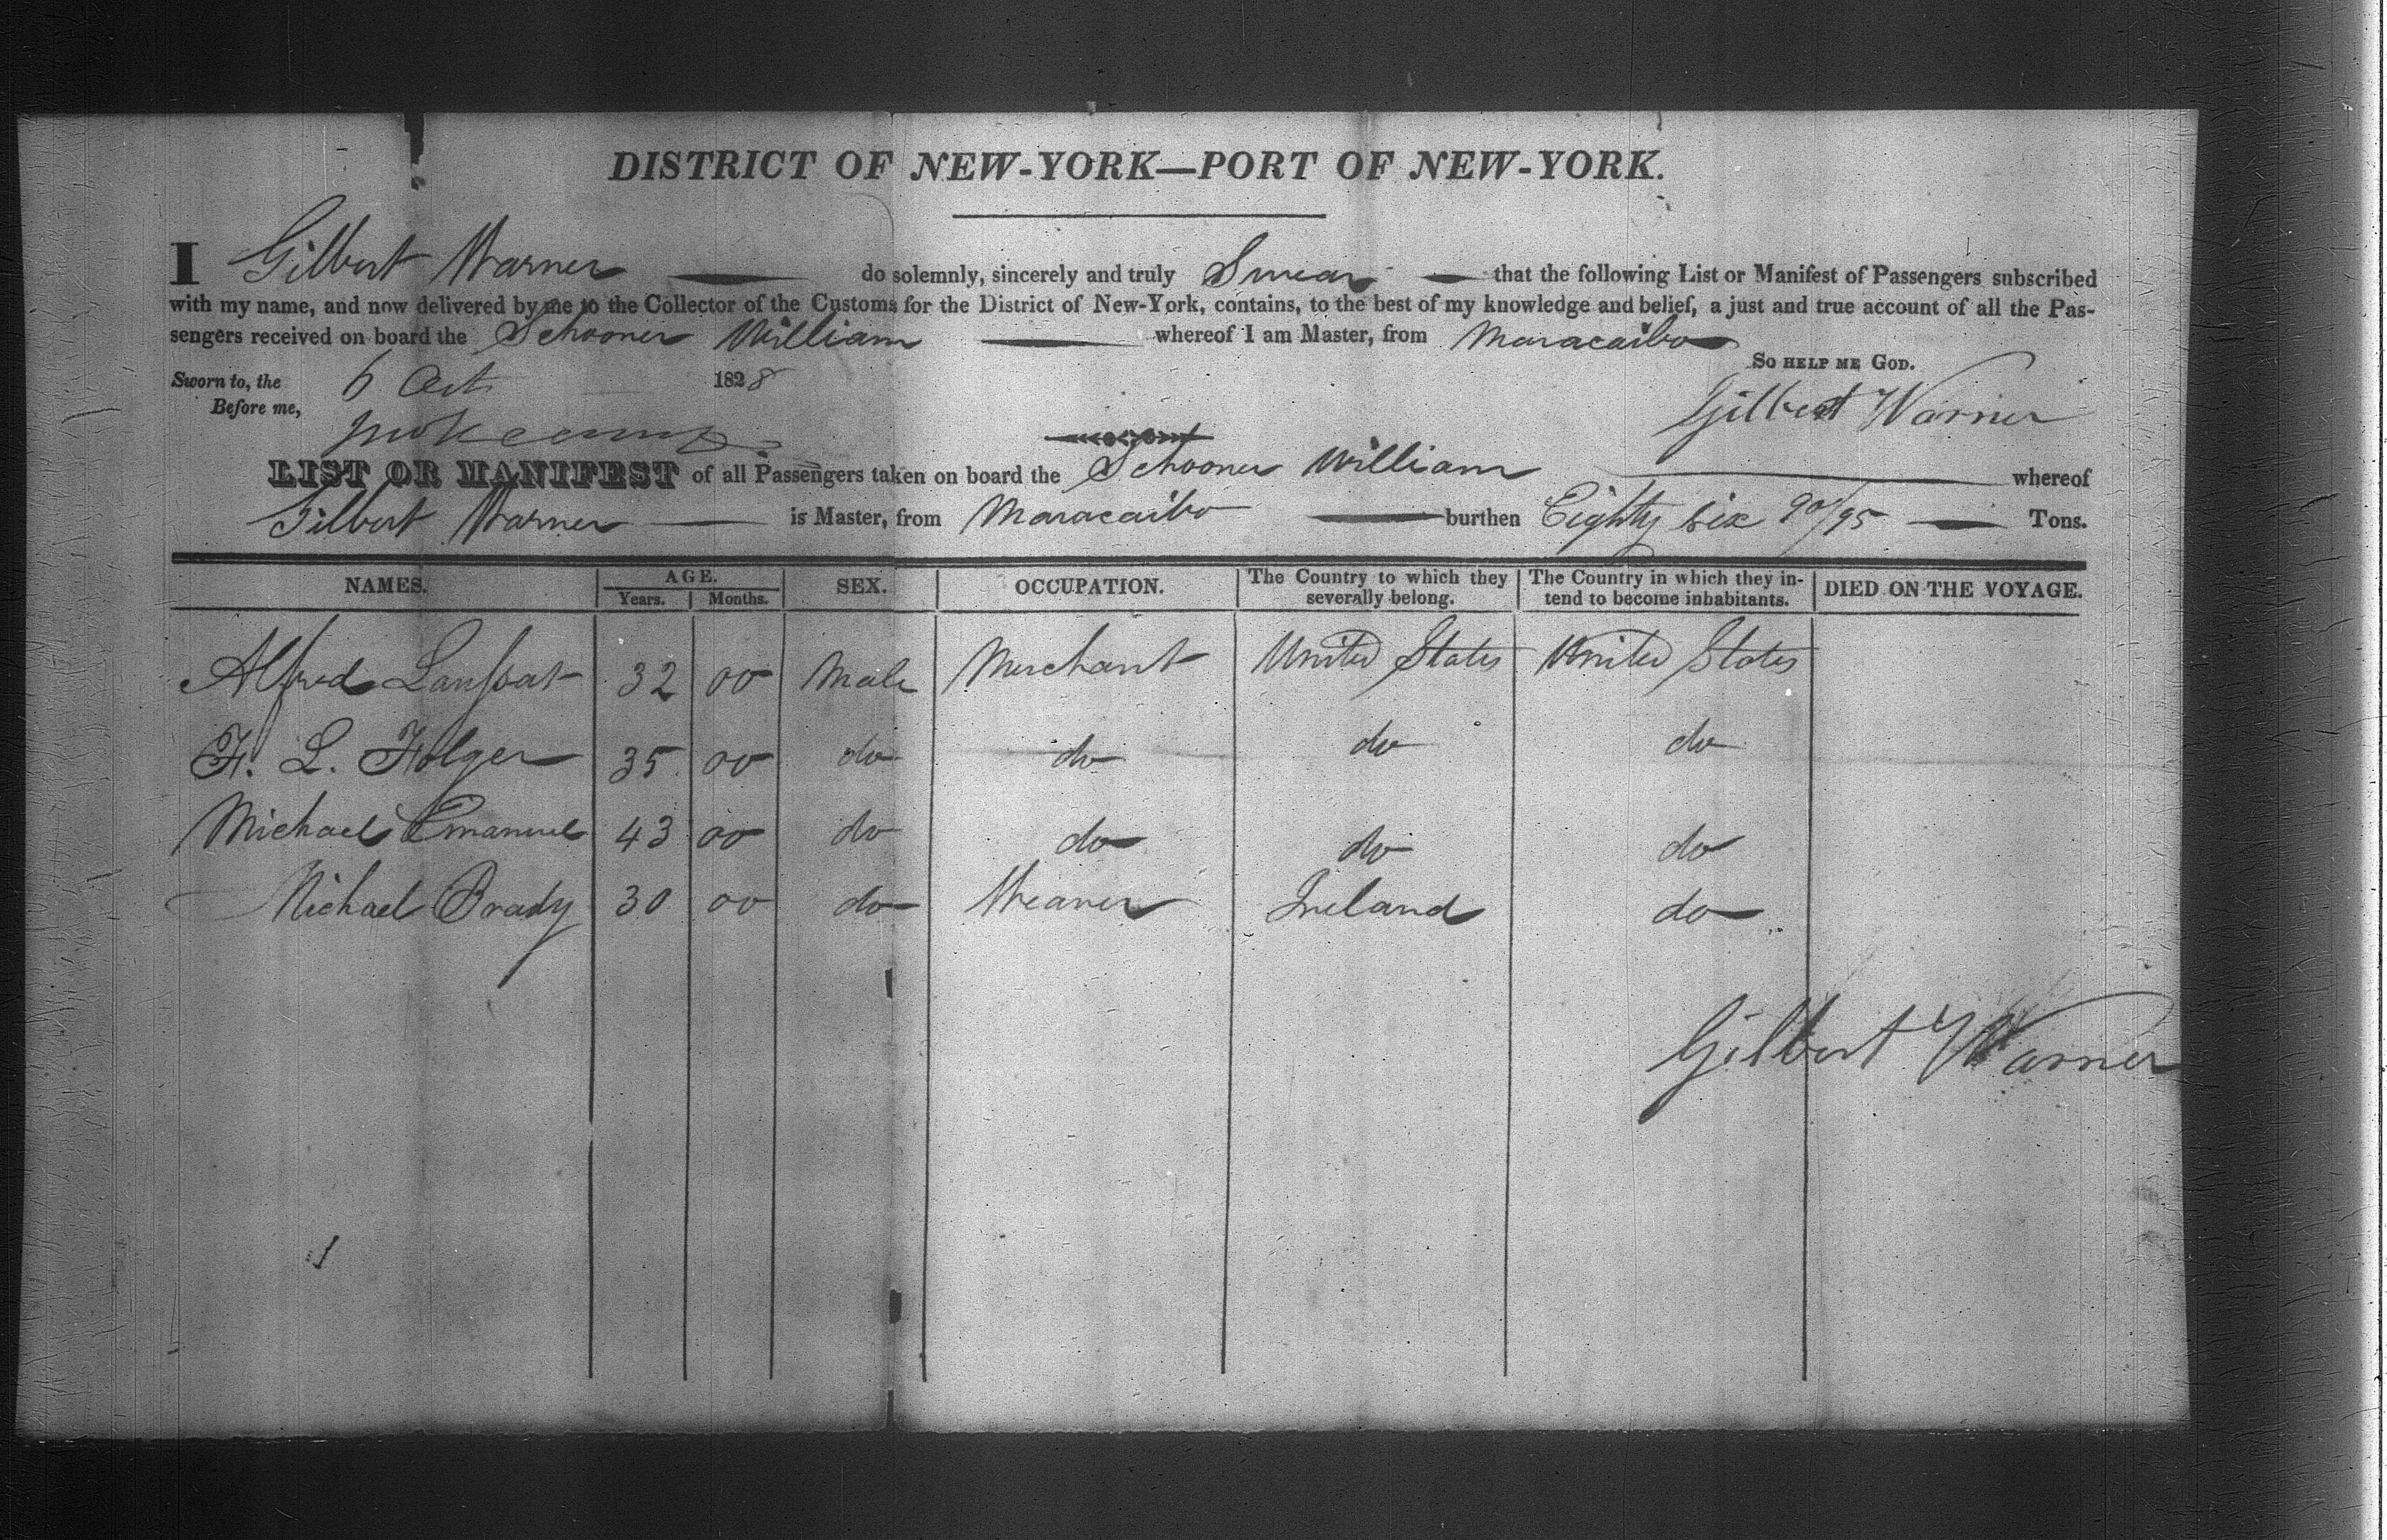 DISTRICT OF NEW-YORK—PORT OF NEW-YORK.
I Gilbert Warner do solemnly, sincerely and truly Swear that the following List or Manifest of Passengers subscribed
with my name, and now delivered by me to the Collector of the Customs for the District of New-York, contains, to the best of my knowledge and belief, a just and true account of all the Pas-
sengers received on board the Schooner William whereof I am Master, from Maracaibo
So HELP ME GOD.
Sworn to, the 6 Oct 1828
Before me,
Gilbert Warner
LIST OR MANIFEST of all Passengers taken on board the Schooner William whereof
Gilbert Warner is Master, from Maracaibo burthen Eighty six 90/95 Tons.
NAMES. AGE. Years. Months. SEX. OCCUPATION. The Country to which they severally belong. The Country in which they in- tend to become inhabitants. DIED ON THE VOYAGE.
Alfred 32 00 Male Merchant United States United States
F. L. Folger 35 00 do do do do
Michael Emanuel 43 00 do do do do
Michael Brady 30 00 do Weaver Ireland do
Gilbert Warner